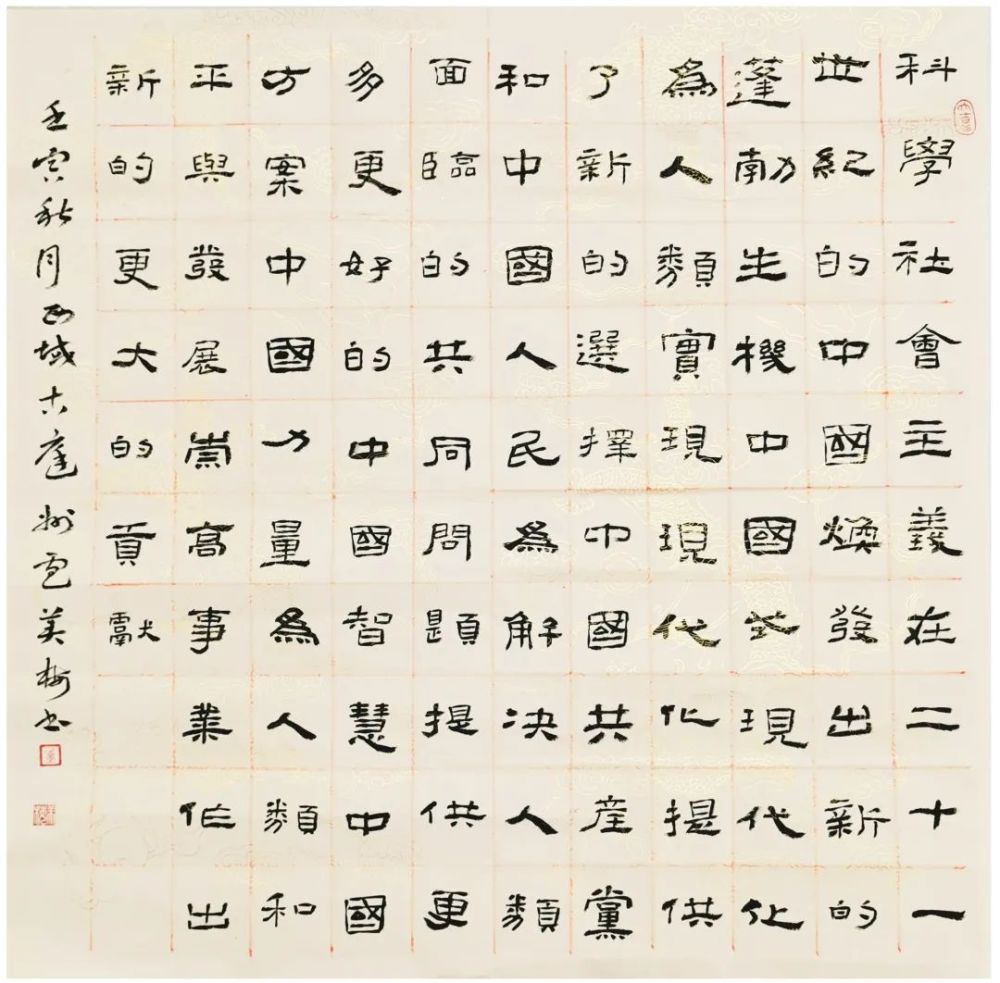 科學社會主義在二十一
世紀的中國煥發出新的
蓬勃生機中國式現代化
為人類實現現代化提供
了新的選擇中國共產黨
和中國人民為解決人類
面臨的共同問題提供更
多更好的中國智慧中國
方案中國力量為人類和
平與發展崇高事業作出
新的更大的貢獻
壬寅秋月西域古庭州雪美梅书